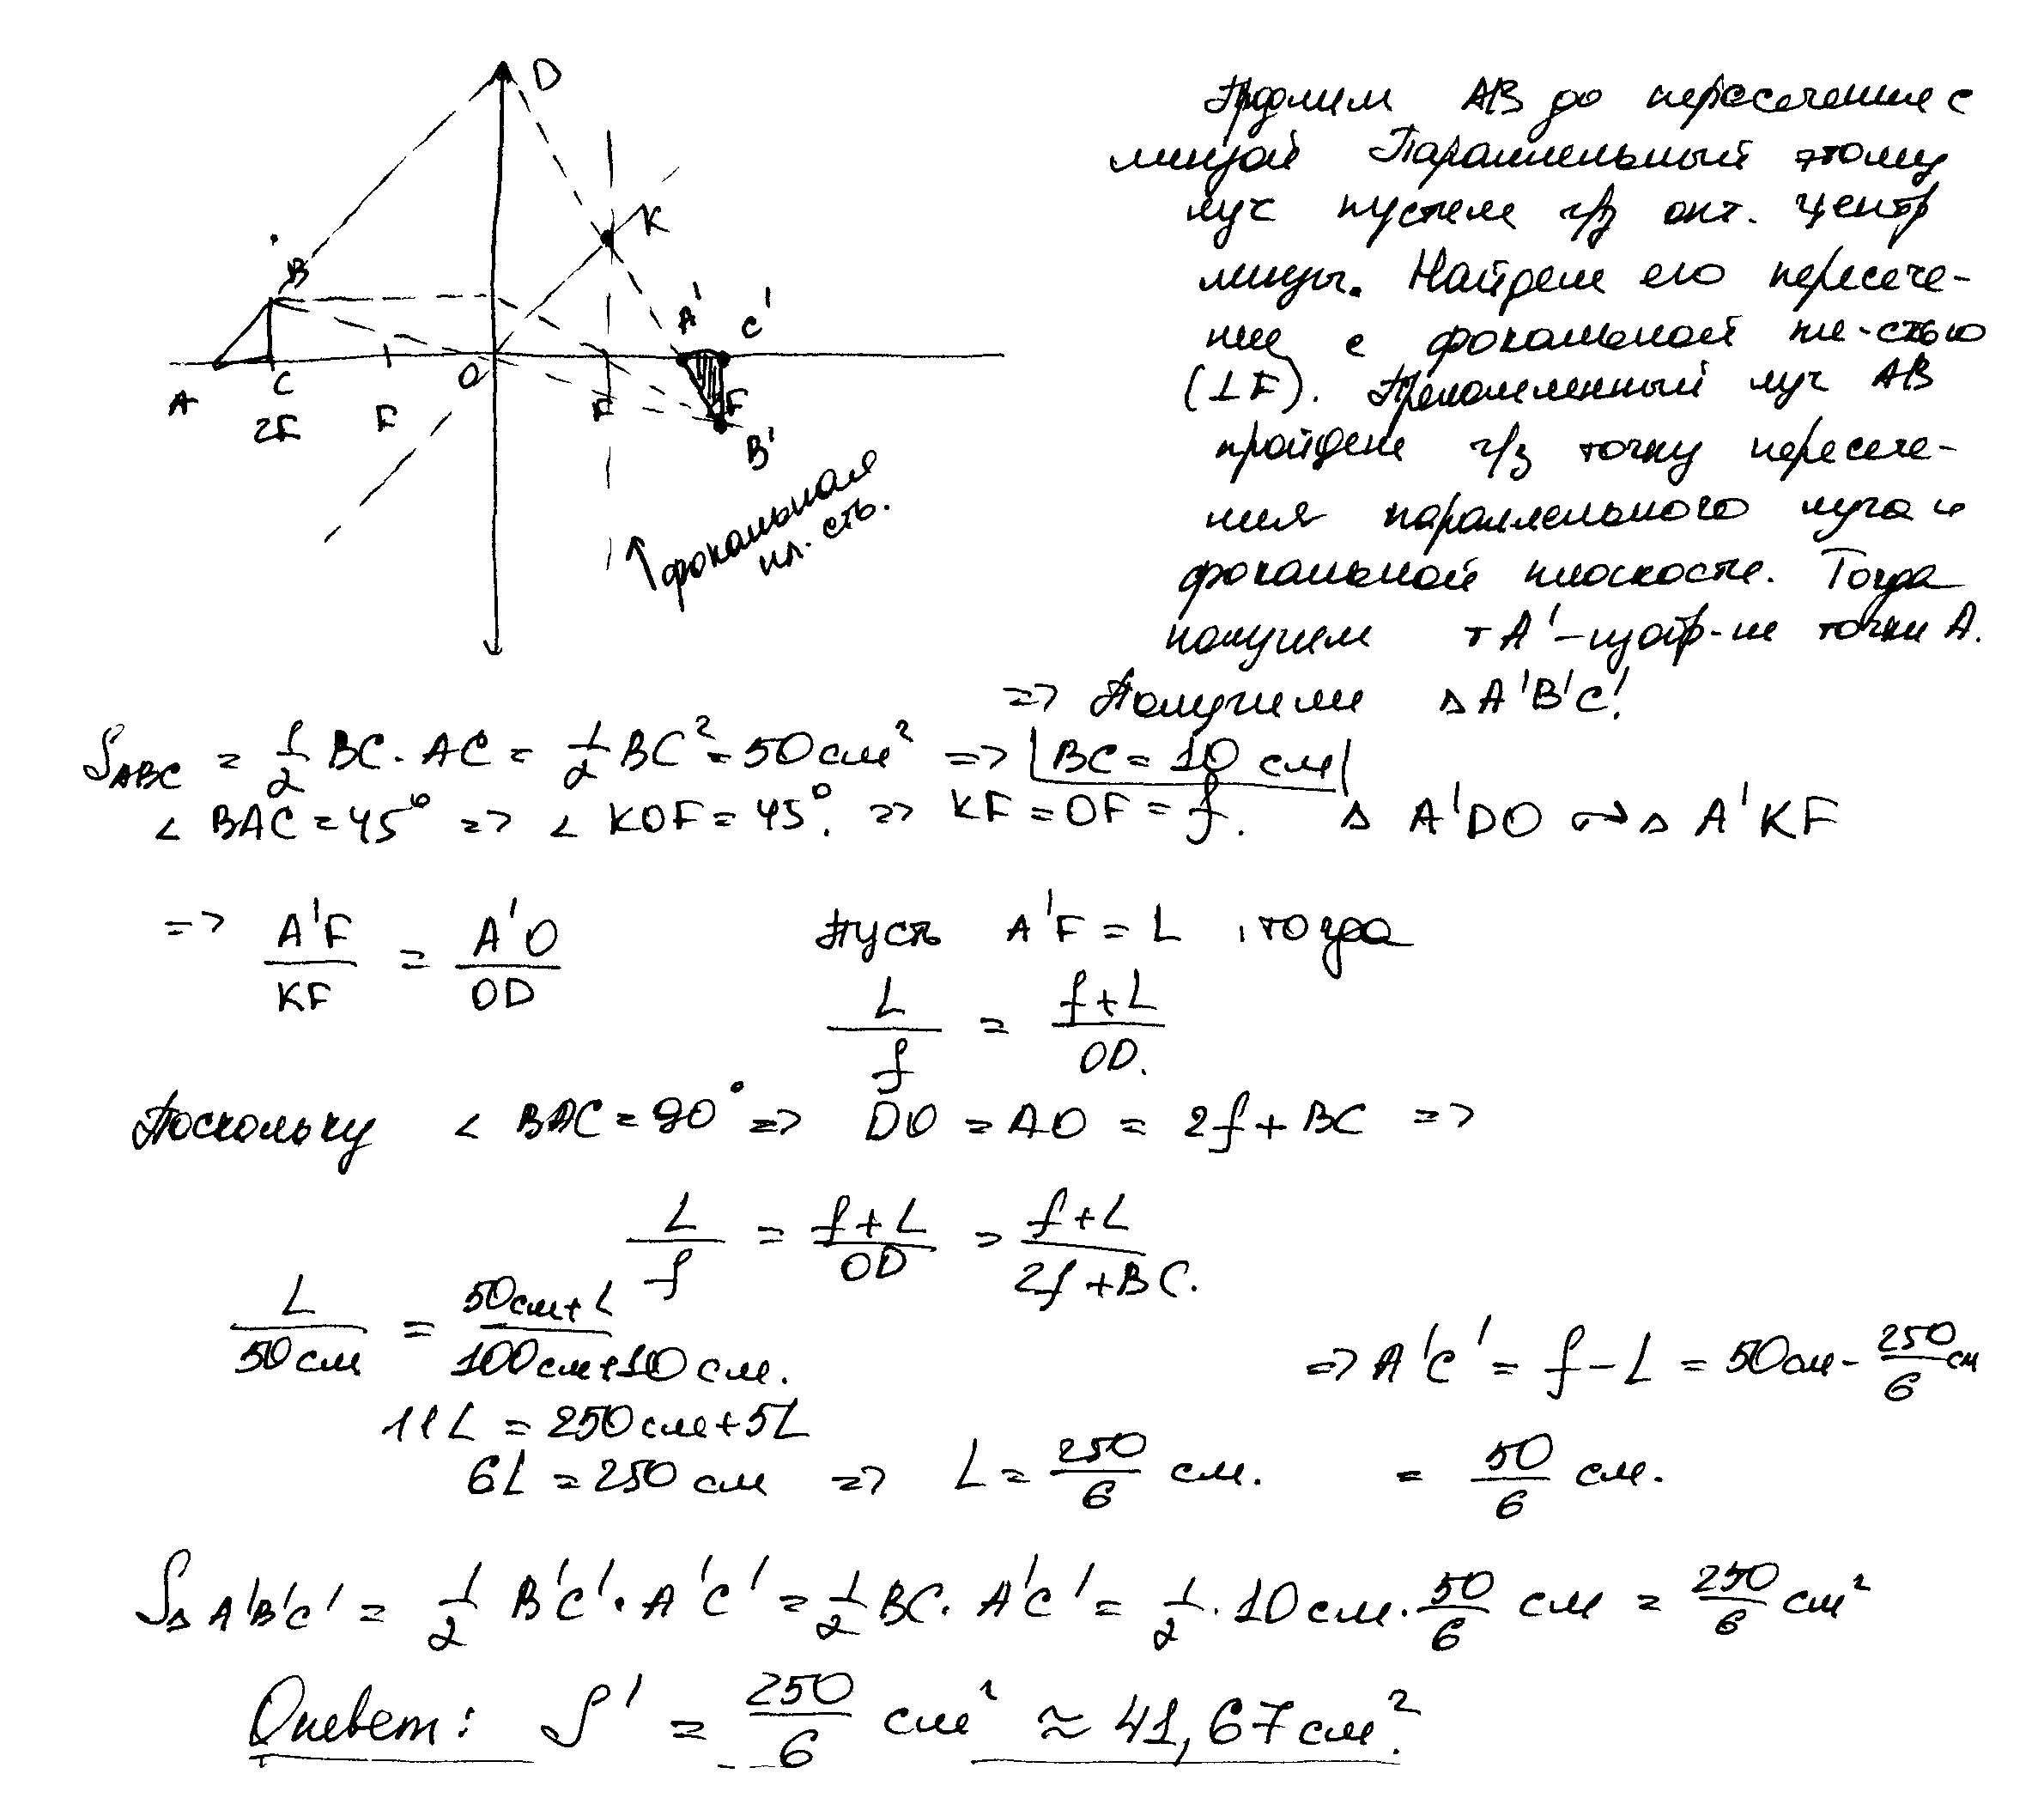 D
K
B
A' C'
A C O F F
2F F
B'
фокальная
пл. сть.
Продлим AB до пересечения с
линзой Параллельный этому
луч пустим ч/з опт. центр
линзы. Найдем его пересече-
ние с фокальной пл-стью
(⊥F). Преломленный луч AB
пройдет ч/з точку пересече-
ния параллельного луча и
фокальной плоскости. Тогда
получим т A' – изобр-ие точки A.
=> Получили Δ A'B'C'.
S_ABC = 1/2 BC · AC = 1/2 BC² = 50 см² => |BC = 10 см|
∠ BAC = 45° => ∠ KOF = 45°. => KF = OF = f. Δ A'DO ∾ Δ A'KF
=> A'F/KF = A'O/OD Пусть A'F = L , тогда
L/f = f+L/OD.
Поскольку ∠ BAC = 90° => DO = AO = 2f + BC =>
L/f = f+L/OD = f+L/2f+BC.
L/50 см = 50 см + L/100 см + 10 см. => A'C' = f – L = 50 см – 250/6 см
11L = 250 см + 5L
6L = 250 см => L = 250/6 см. = 50/6 см.
S_Δ A'B'C' = 1/2 B'C' · A'C' = 1/2 BC · A'C' = 1/2 · 10 см · 50/6 см = 250/6 см²
Ответ: S' = 250/6 см² ≈ 41,67 см².